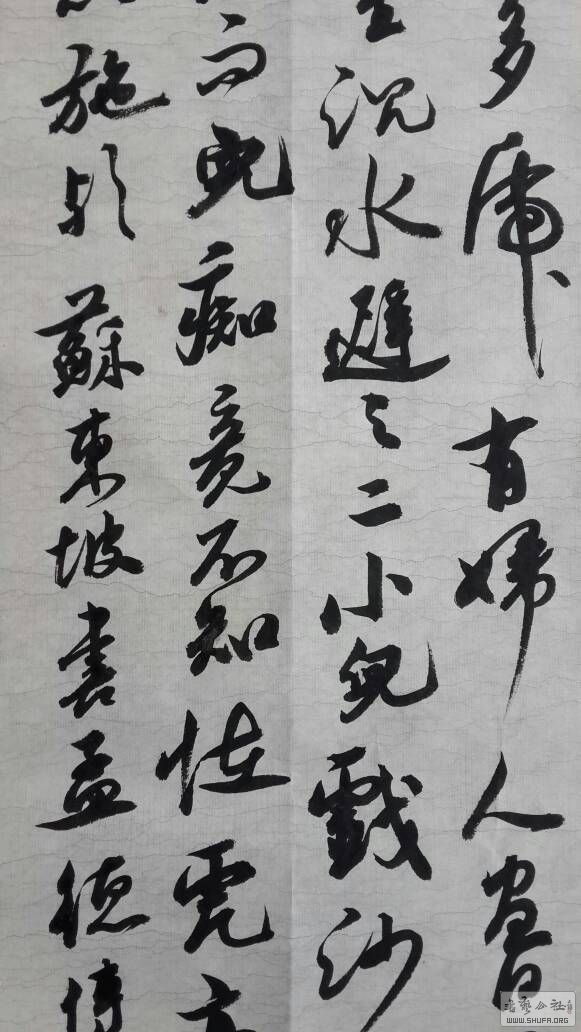 多虎有婦人晝
沉水避之二小兒戲沙
而兒痴竟不知怪虎亦
施欤 蘇東坡書孟德傳
书艺公社
WWW.SHUFA.ORG